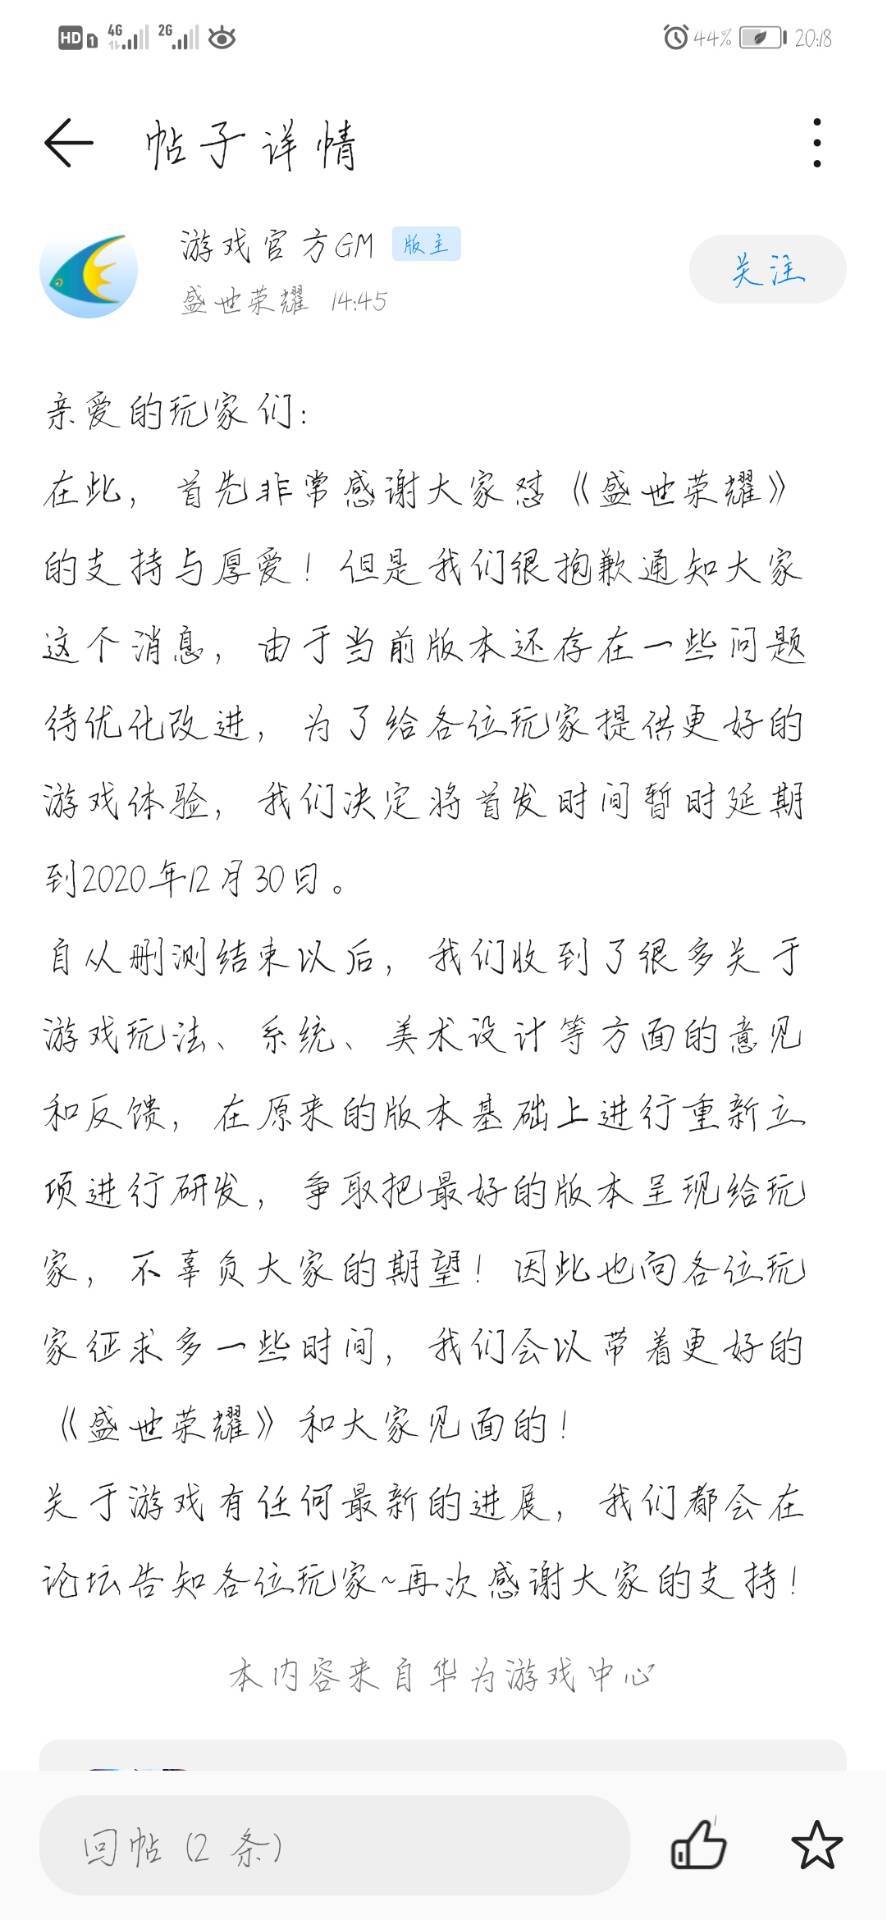 HD 1 4G 2G 44% 20:18
帖子详情
游戏官方GM 版主
盛世荣耀 14:45
关注
亲爱的玩家们:
在此，首先非常感谢大家怼《盛世荣耀》
的支持与厚爱！但是我们很抱歉通知大家
这个消息，由于当前版本还存在一些问题
待优化改进，为了给各位玩家提供更好的
游戏体验，我们决定将首发时间暂时延期
到2020年12月30日。
自从删测结束以后，我们收到了很多关于
游戏玩法、系统、美术设计等方面的意见
和反馈，在原来的版本基础上进行重新立
项进行研发，争取把最好的版本呈现给玩
家，不辜负大家的期望！因此也向各位玩
家征求多一些时间，我们会以带着更好的
《盛世荣耀》和大家见面的！
关于游戏有任何最新的进展，我们都会在
论坛告知各位玩家~再次感谢大家的支持！
本内容来自华为游戏中心
回帖 (2 条)